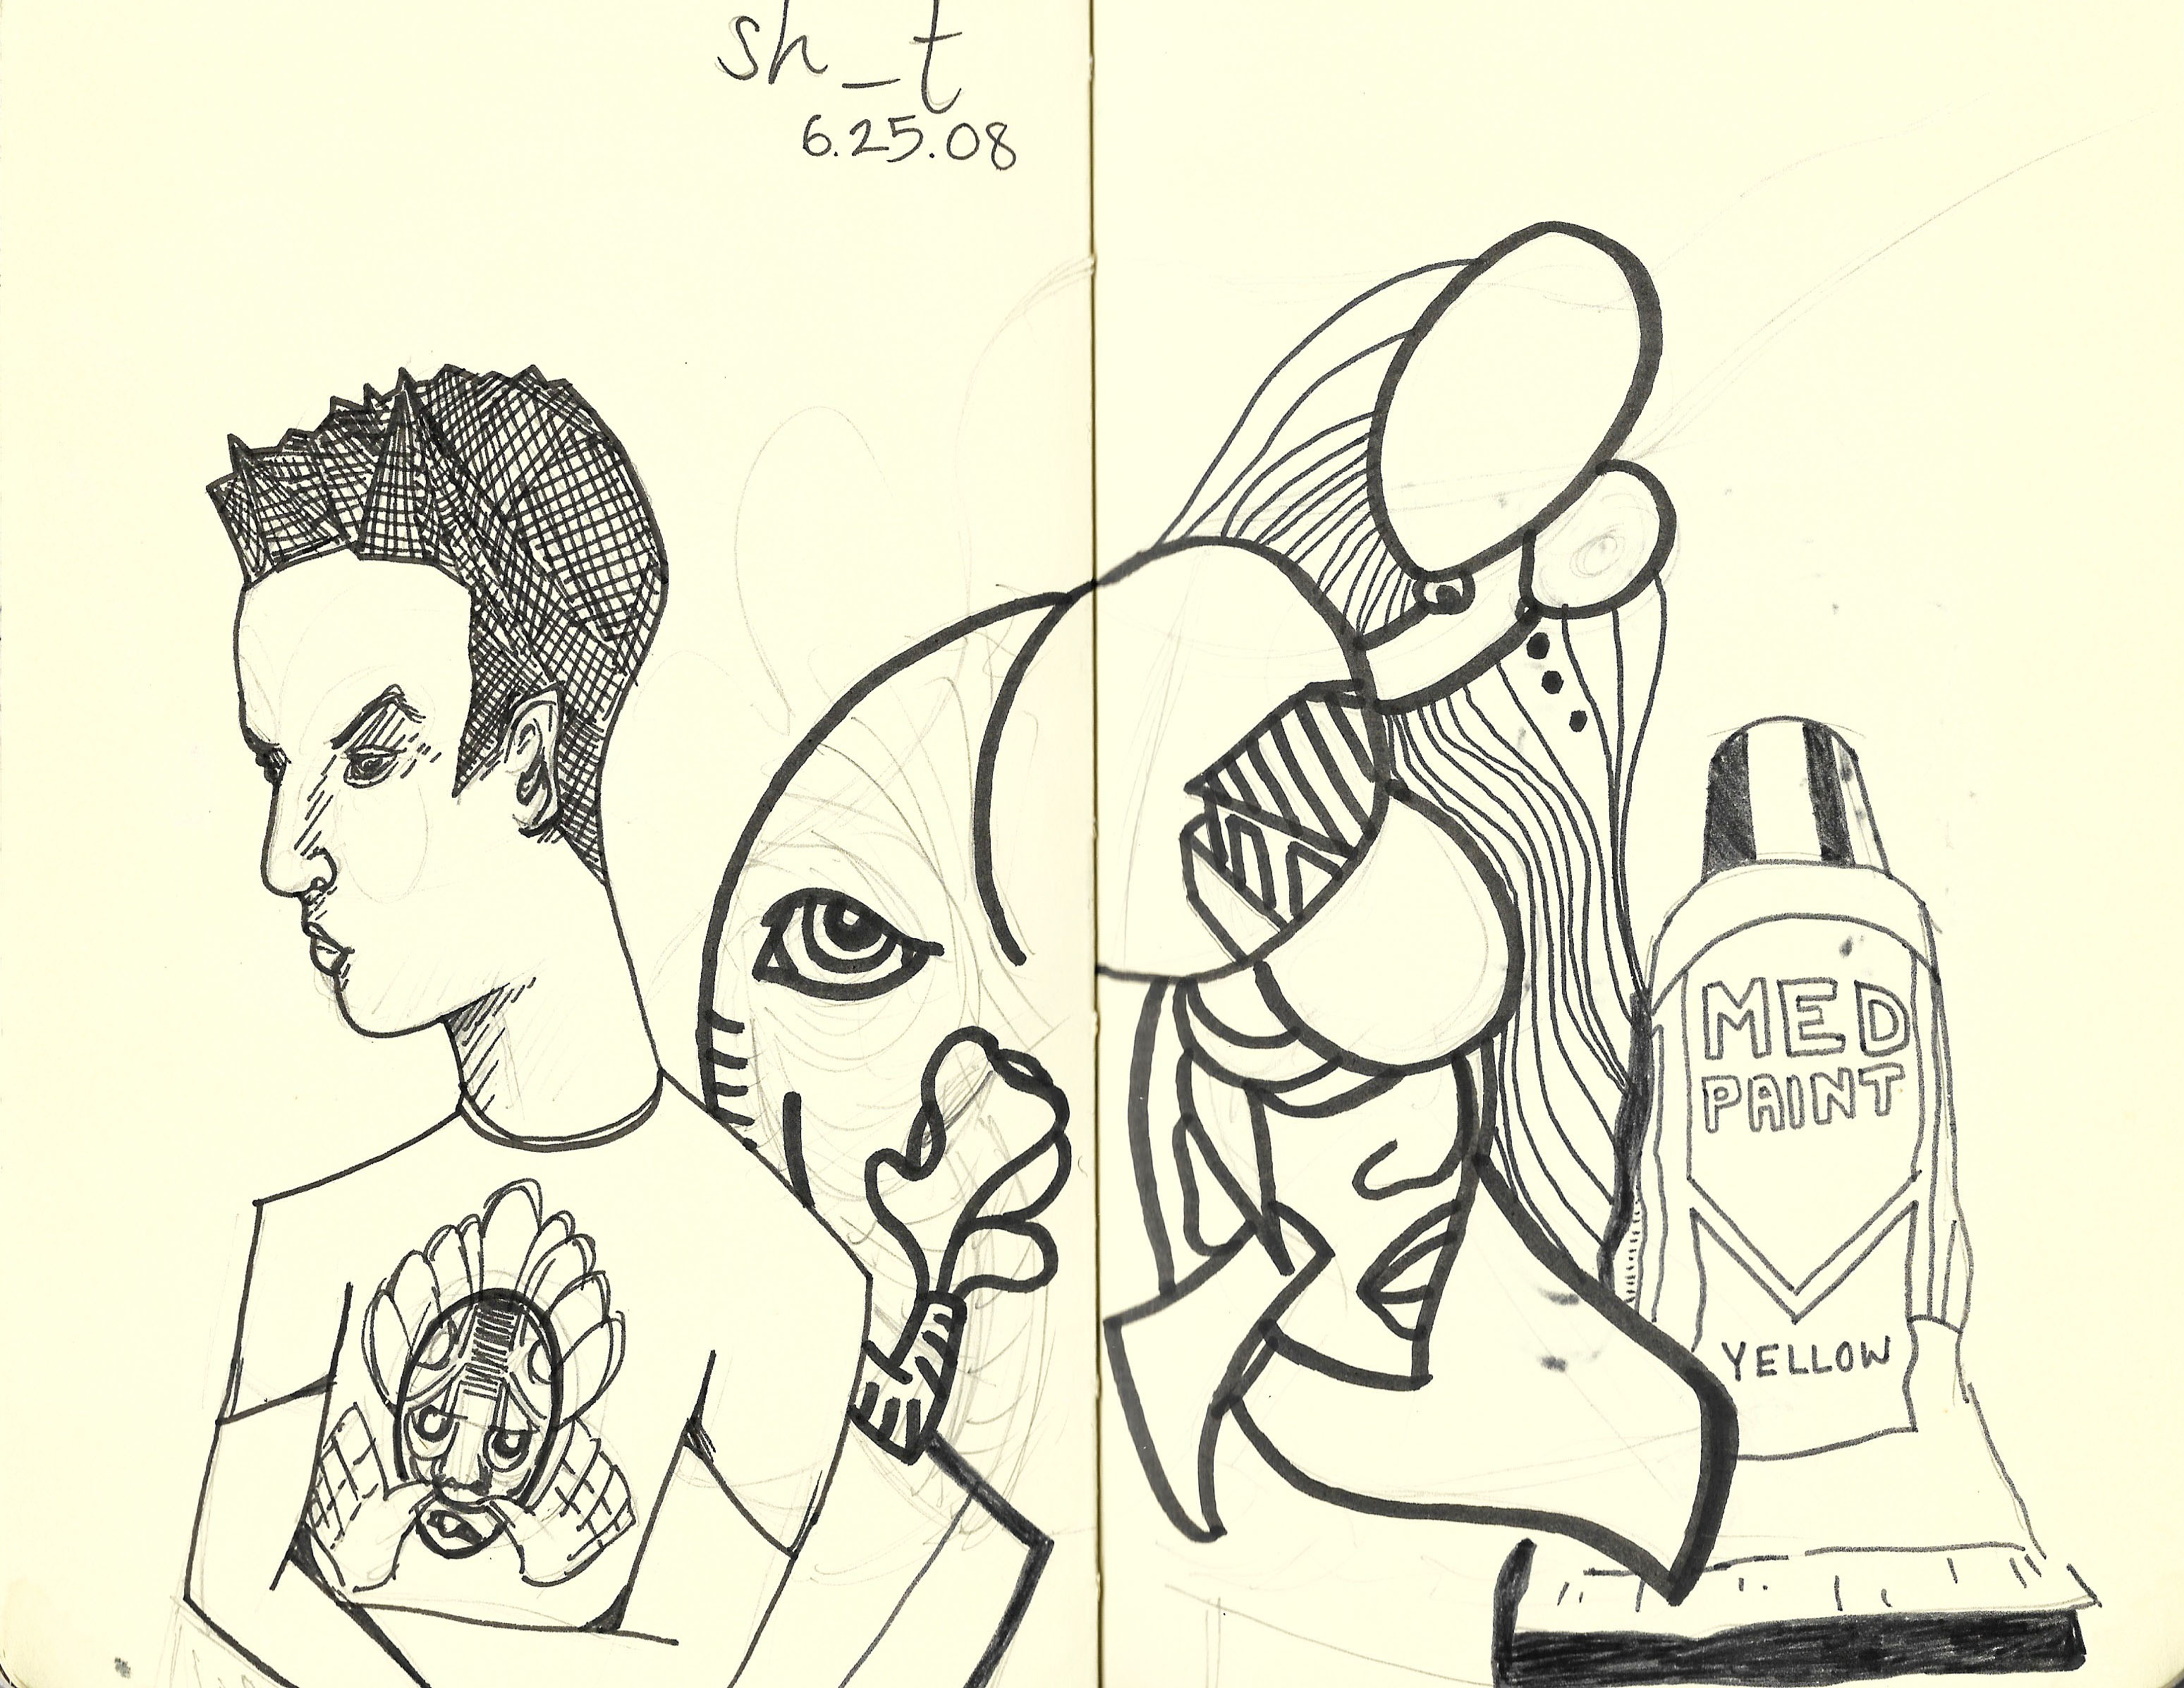 sh_t
6.25.08
MED
PAINT
YELLOW